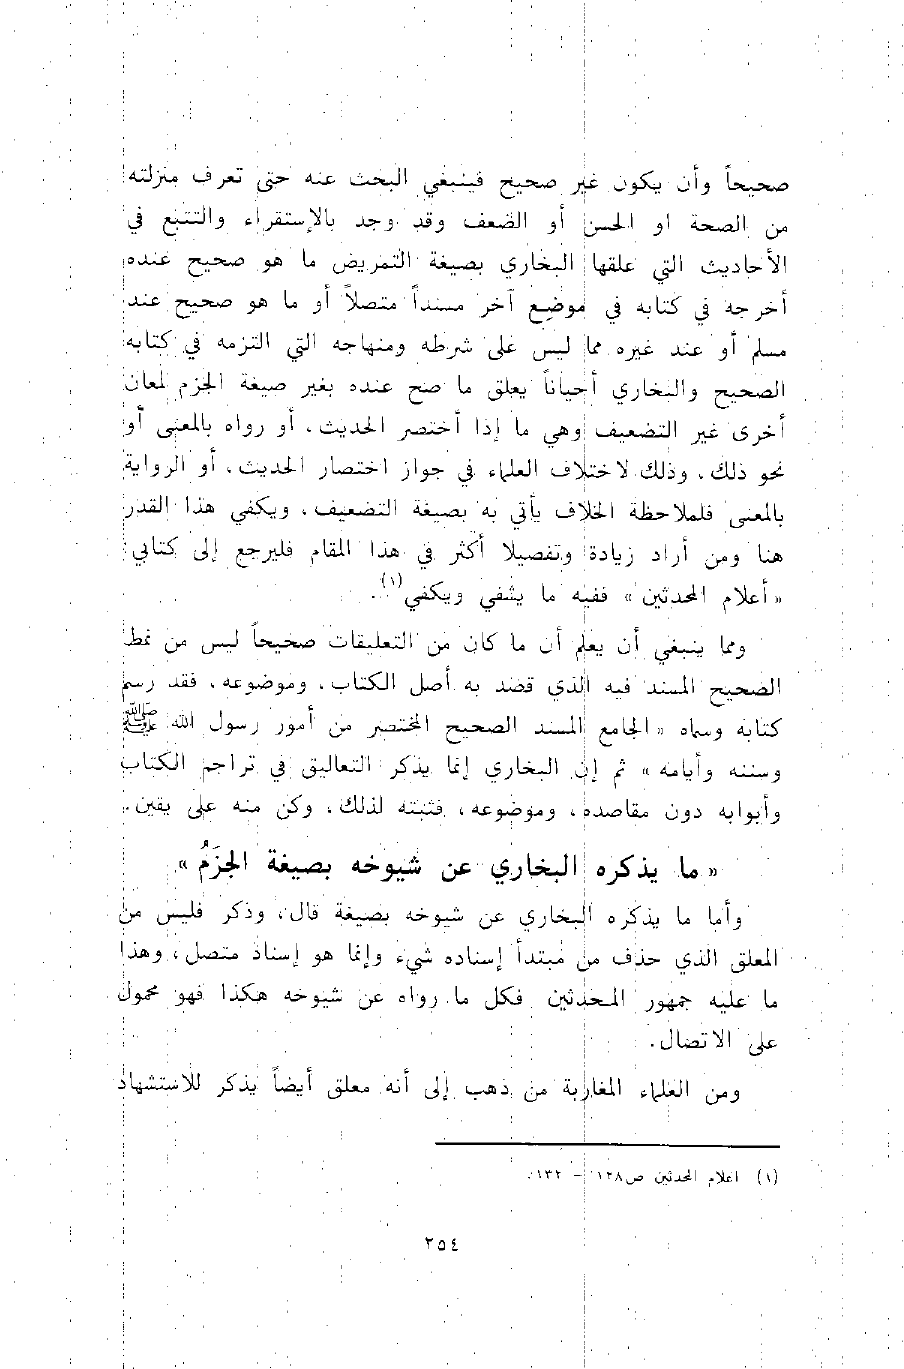 صحيحاً وأن يكون غير صحيح فينبغي البحث عنه حتى تعرف منزلته
من الصحة او الحسن أو الضعف وقد وجد بالإستقراء والتتبع في
الأحاديث التي علقها البخاري بصيغة التمريض ما هو صحيح عنده
أخرجه في كتابه في موضع آخر مسنداً متصلاً أو ما هو صحيح عند
مسلم أو عند غيره مما ليس على شرطه ومنهاجه التي التزمه في كتابه
الصحيح والبخاري أحياناً يعلق ما صح عنده بغير صيغة الجزم لمعان
أخرى غير التضعيف وهي ما إذا أختصر الحديث، أو رواه بالمعنى أو
نحو ذلك، وذلك لاختلاف العلماء في جواز اختصار الحديث، أو الرواية
بالمعنى فلملاحظة الخلاف يأتي به بصيغة التضعيف، ويكفي هذا القدر
هنا ومن أراد زيادة وتفصيلا أكثر في هذا المقام فليرجع إلى كتابي
«أعلام المحدثين» ففيه ما يشفي ويكفي(١).
ومما ينبغي أن يعلم أن ما كان من التعليقات صحيحاً ليس من نمط
الصحيح المسند فيه الذي قصد به أصل الكتاب، وموضوعه، فقد رسم
كتابه وسماه «الجامع المسند الصحيح المختصر من أمور رسول الله ﷺ
وسننه وأيامه» ثم إن البخاري إنما يذكر التعاليق في تراجم الكتاب
وأبوابه دون مقاصده، وموضوعه، فثبته لذلك، وكن منه على يقين.
«ما يذكره البخاري عن شيوخه بصيغة الجزَمُ»
وأما ما يذكره البخاري عن شيوخه بصيغة قال، وذكر فليس من
المعلق الذي حذف من مبتدأ إسناده شيء وإنما هو إسناد متصل، وهذا
ما عليه جمهور المحدثين فكل ما رواه عن شيوخه هكذا فهو محمول
على الاتصال.
ومن العلماء المغاربة من ذهب إلى أنه معلق أيضاً يذكر للاستشهاد
(١) اعلام المحدثين ص١٢٨ – ١٣٢.
٢٥٤